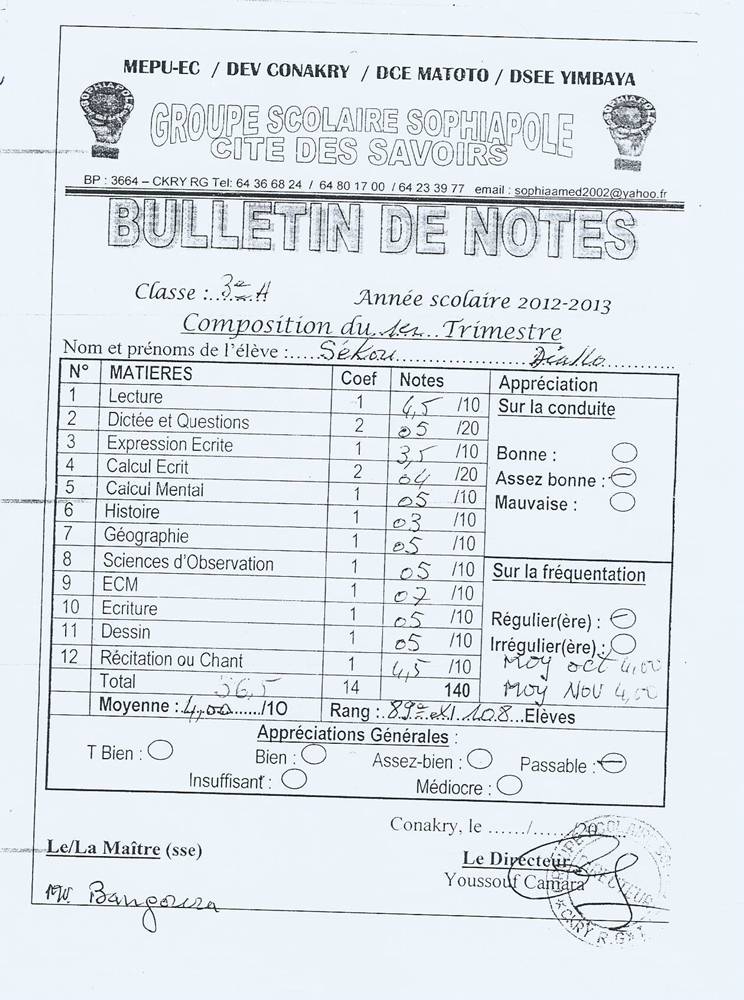 MEPU-EC / DEV CONAKRY / DCE MATOTO / DSEE YIMBAYA
GROUPE SCOLAIRE SOPHIAPOLE
CITE DES SAVOIRS
BP : 3664 – CKRY RG Tel: 64 36 68 24 / 64 80 17 00 / 64 23 39 77 email : sophiaamed2002@yahoo.fr
BULLETIN DE NOTES
Classe : 3e A Année scolaire 2012-2013
Composition du 1er Trimestre
Nom et prénoms de l'élève : Sékou Diallo
N° MATIERES Coef Notes Appréciation
1 Lecture 1 4,5 /10 Sur la conduite
2 Dictée et Questions 2 05 /20
3 Expression Ecrite 1 3,5 /10 Bonne :
4 Calcul Ecrit 2 04 /20 Assez bonne :
5 Calcul Mental 1 05 /10 Mauvaise :
6 Histoire 1 03 /10
7 Géographie 1 05 /10
8 Sciences d'Observation 1 05 /10 Sur la fréquentation
9 ECM 1 07 /10
10 Ecriture 1 05 /10 Régulier(ère) :
11 Dessin 1 05 /10 Irrégulier(ère) :
12 Récitation ou Chant 1 4,5 /10 Moy oct 4,00
Total 56,5 14 140 Moy Nov 4,00
Moyenne : 4,00 /10 Rang : 89e ex/108 Elèves
Appréciations Générales :
T Bien : Bien : Assez-bien : Passable :
Insuffisant : Médiocre :
Conakry, le ....../....../20
Le/La Maître (sse) Le Directeur
Youssouf Camara
Mr Bangoura
DIRECTEUR
CKRY R.G